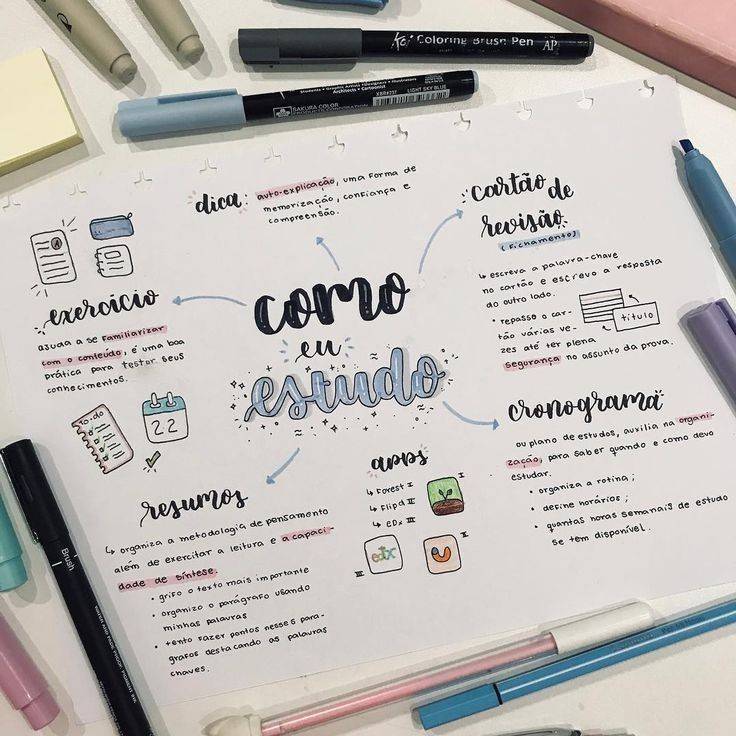 Koi Coloring Brush Pen AP
Students • Graphic Artists • Designers • Illustrators
Architects • Cartoonist
SAKURA COLOR
PRODUCTS CORPORATION
XBR#237
LIGHT SKY BLUE
dica:
auto-explicação, uma forma de
memorização, confiança e
compreensão.
cartão de
revisão
(fichamento)
↳ escreva a palavra-chave
no cartão e escrevo a resposta
do outro lado.
• repasso o car-
tão várias ve-
zes até ter plena
segurança no assunto da prova.
título
exercício
ajuda a se familiarizar
com o conteúdo, é uma boa
prática para testar seus
conhecimentos.
A
como
eu
estudo
to-do
22
cronograma
ou plano de estudos, auxilia na organi-
zação, para saber quando e como devo
estudar.
• organiza a rotina;
• define horários;
• quantas horas semanais de estudo
se tem disponível.
apps
↳ Forest I
↳ Flipd II
↳ edx III
I
edx
III
II
resumos
↳ organiza a metodologia de pensamento
além de exercitar a leitura e a capaci-
dade de síntese.
• grifo o texto mais importante
• organizo o parágrafo usando
minhas palavras
• tento fazer pontos nesses pará-
grafos destacando as palavras
chaves.
Brush